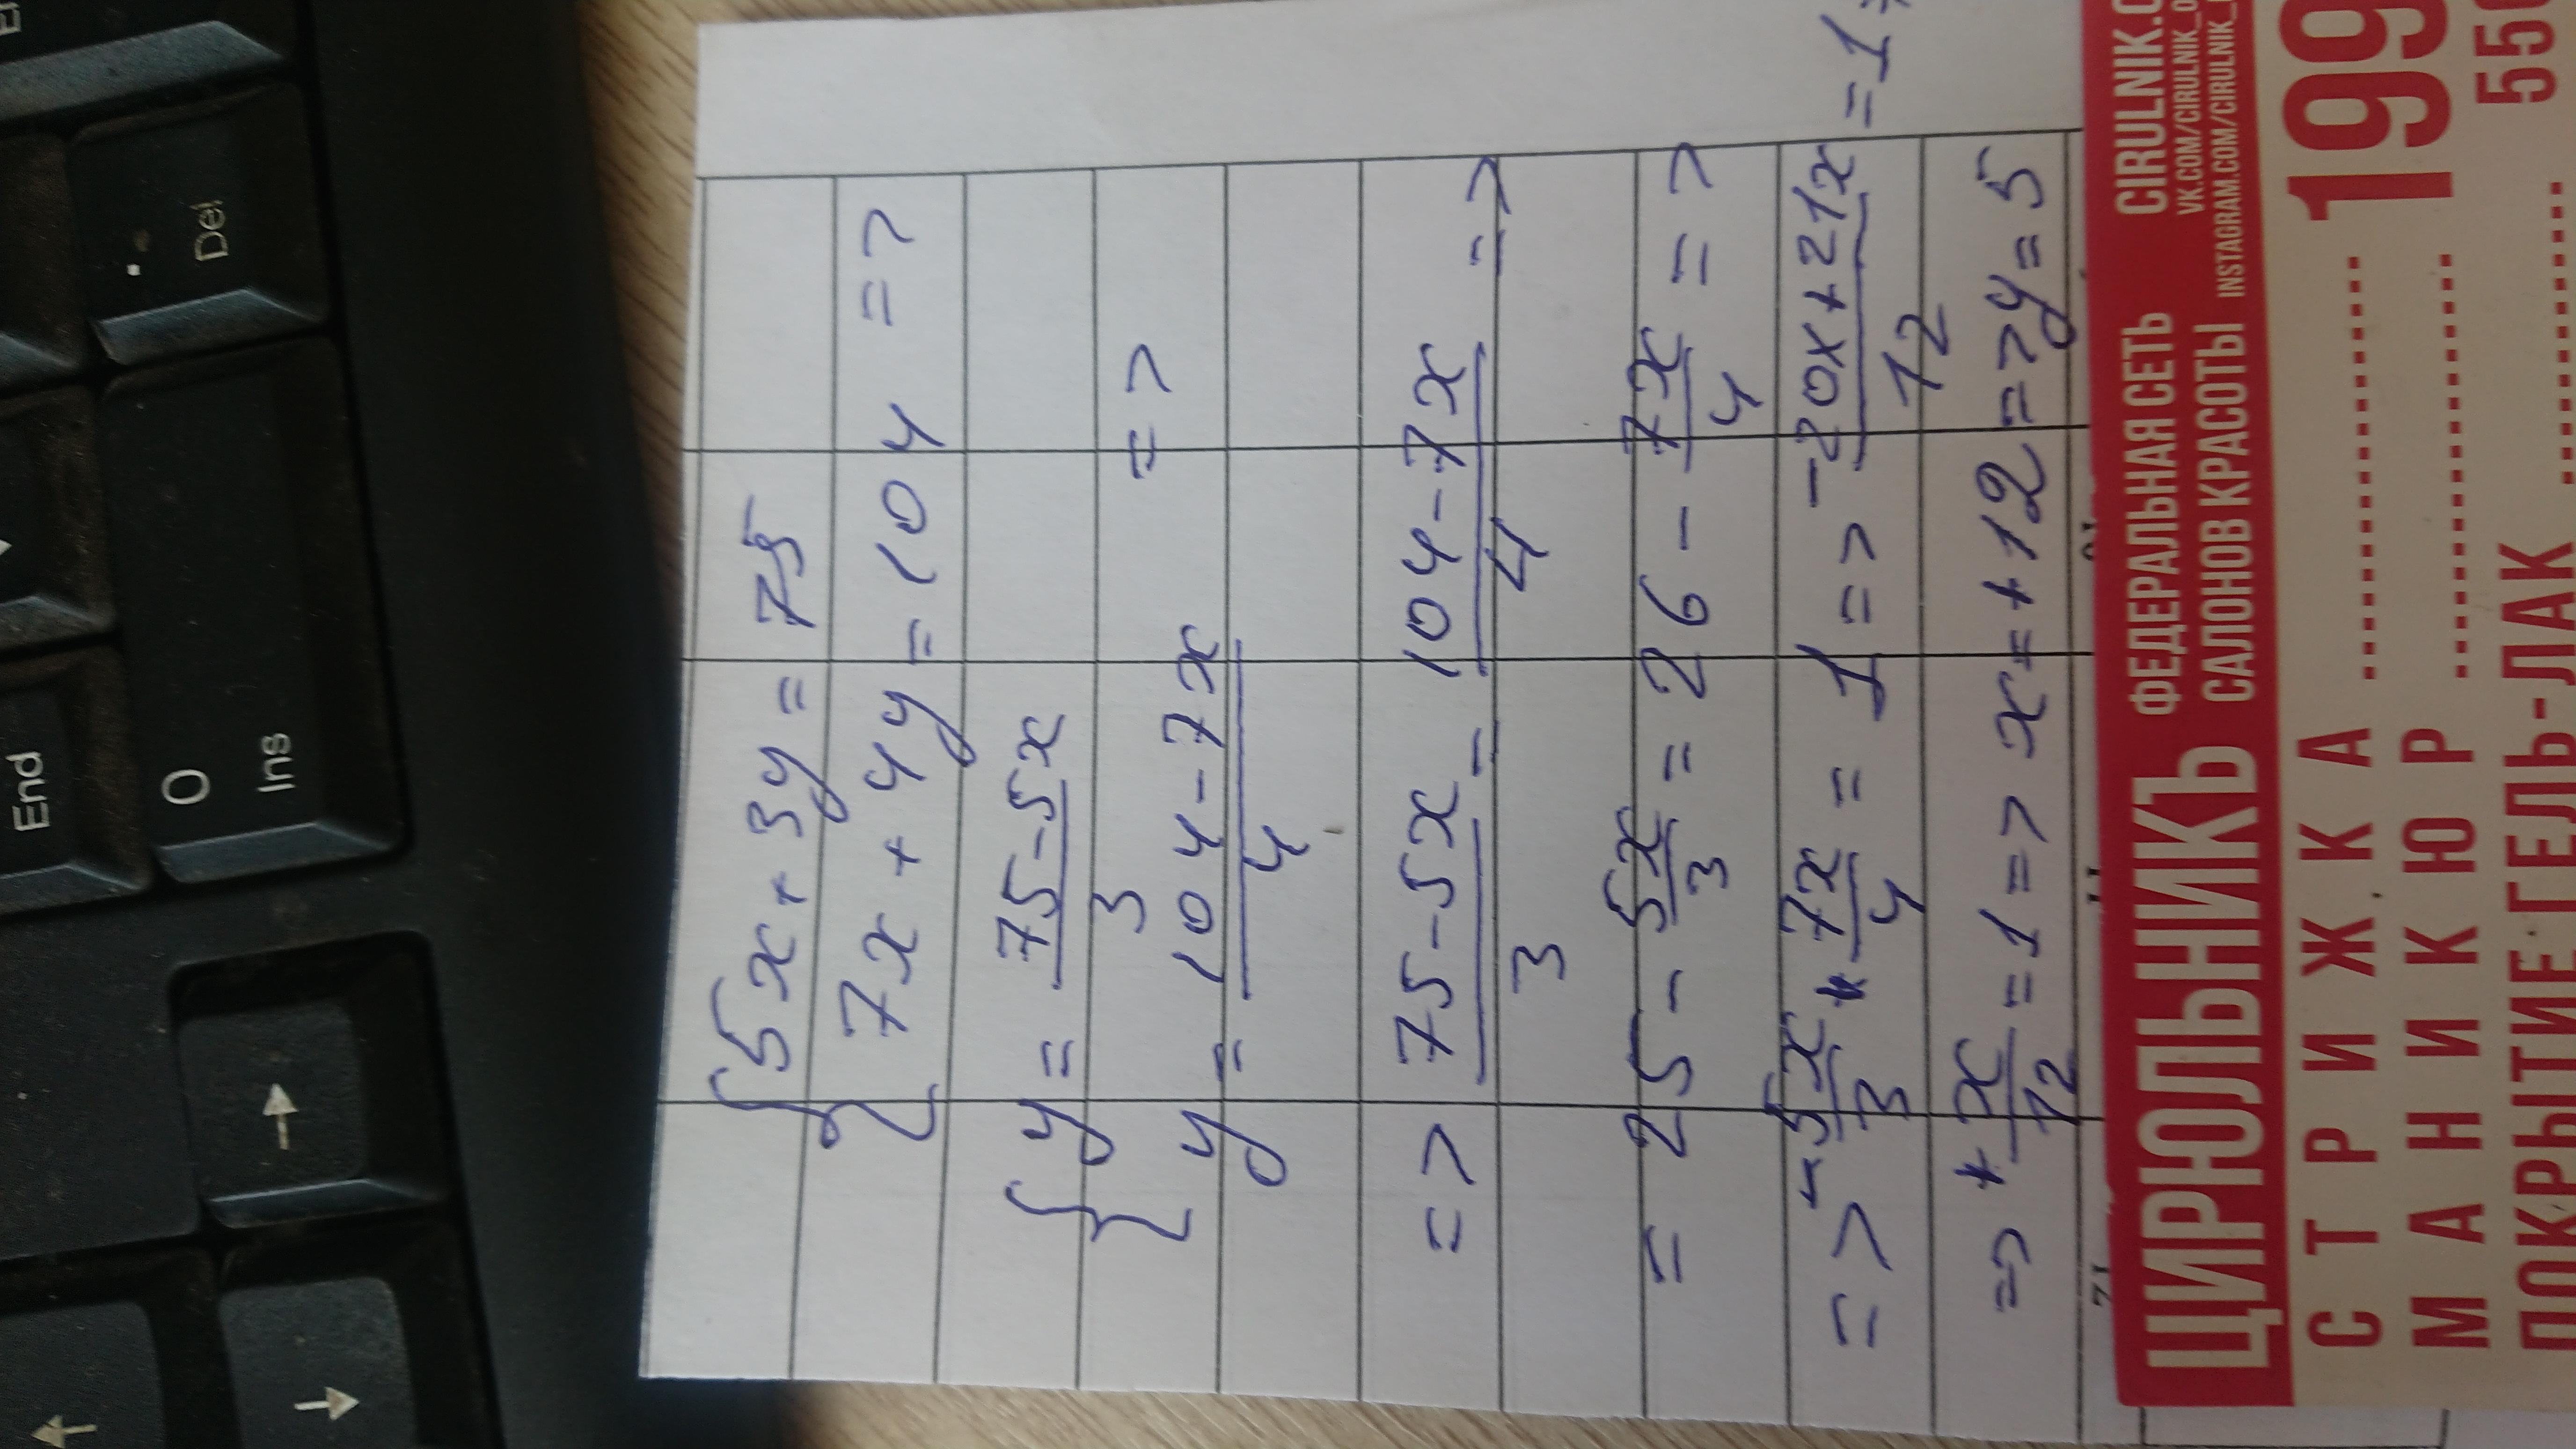 End
0
Ins
Del
{5x+3y=75
{7x+4y=104 =>
{y=75-5x/3
{y=104-7x/4 =>
=> 75-5x/3 = 104-7x/4 =>
= 25 - 5x/3 = 26 - 7x/4 =>
=> -5x/3 + 7x/4 = 1 => -20x+21x/12 = 1
=> +x/12 = 1 => x = +12 => y = 5
ЦИРЮЛЬНИКЪ
ФЕДЕРАЛЬНАЯ СЕТЬ
САЛОНОВ КРАСОТЫ
CIRULNIK.
VK.COM/CIRULNIK_
INSTAGRAM.COM/CIRULNIK_
СТРИЖКА
199
МАНИКЮР
550
ПОКРЫТИЕ ГЕЛЬ-ЛАК